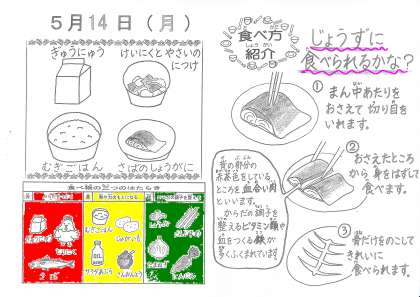 5月14日(月)
ぎゅうにゅう
けいにくとやさいの
につけ
むぎごはん
さばのしょうがに
食べ物の三つのはたらき
むぎごはん
食べ方
しょうかい
紹介
じょうずに
食べられるかな?
① まん中あたりを
おさえて 切り目を
いれます。
② おさえたところ
から 身をはずして
食べます。
③ 骨だけをのこして
きれいに
食べられます。
背の部分の
赤茶色をしている
ところを血合い肉
といいます。
からだの調子を
整えるビタミン類や
血をつくる鉄が
多くふくまれています。